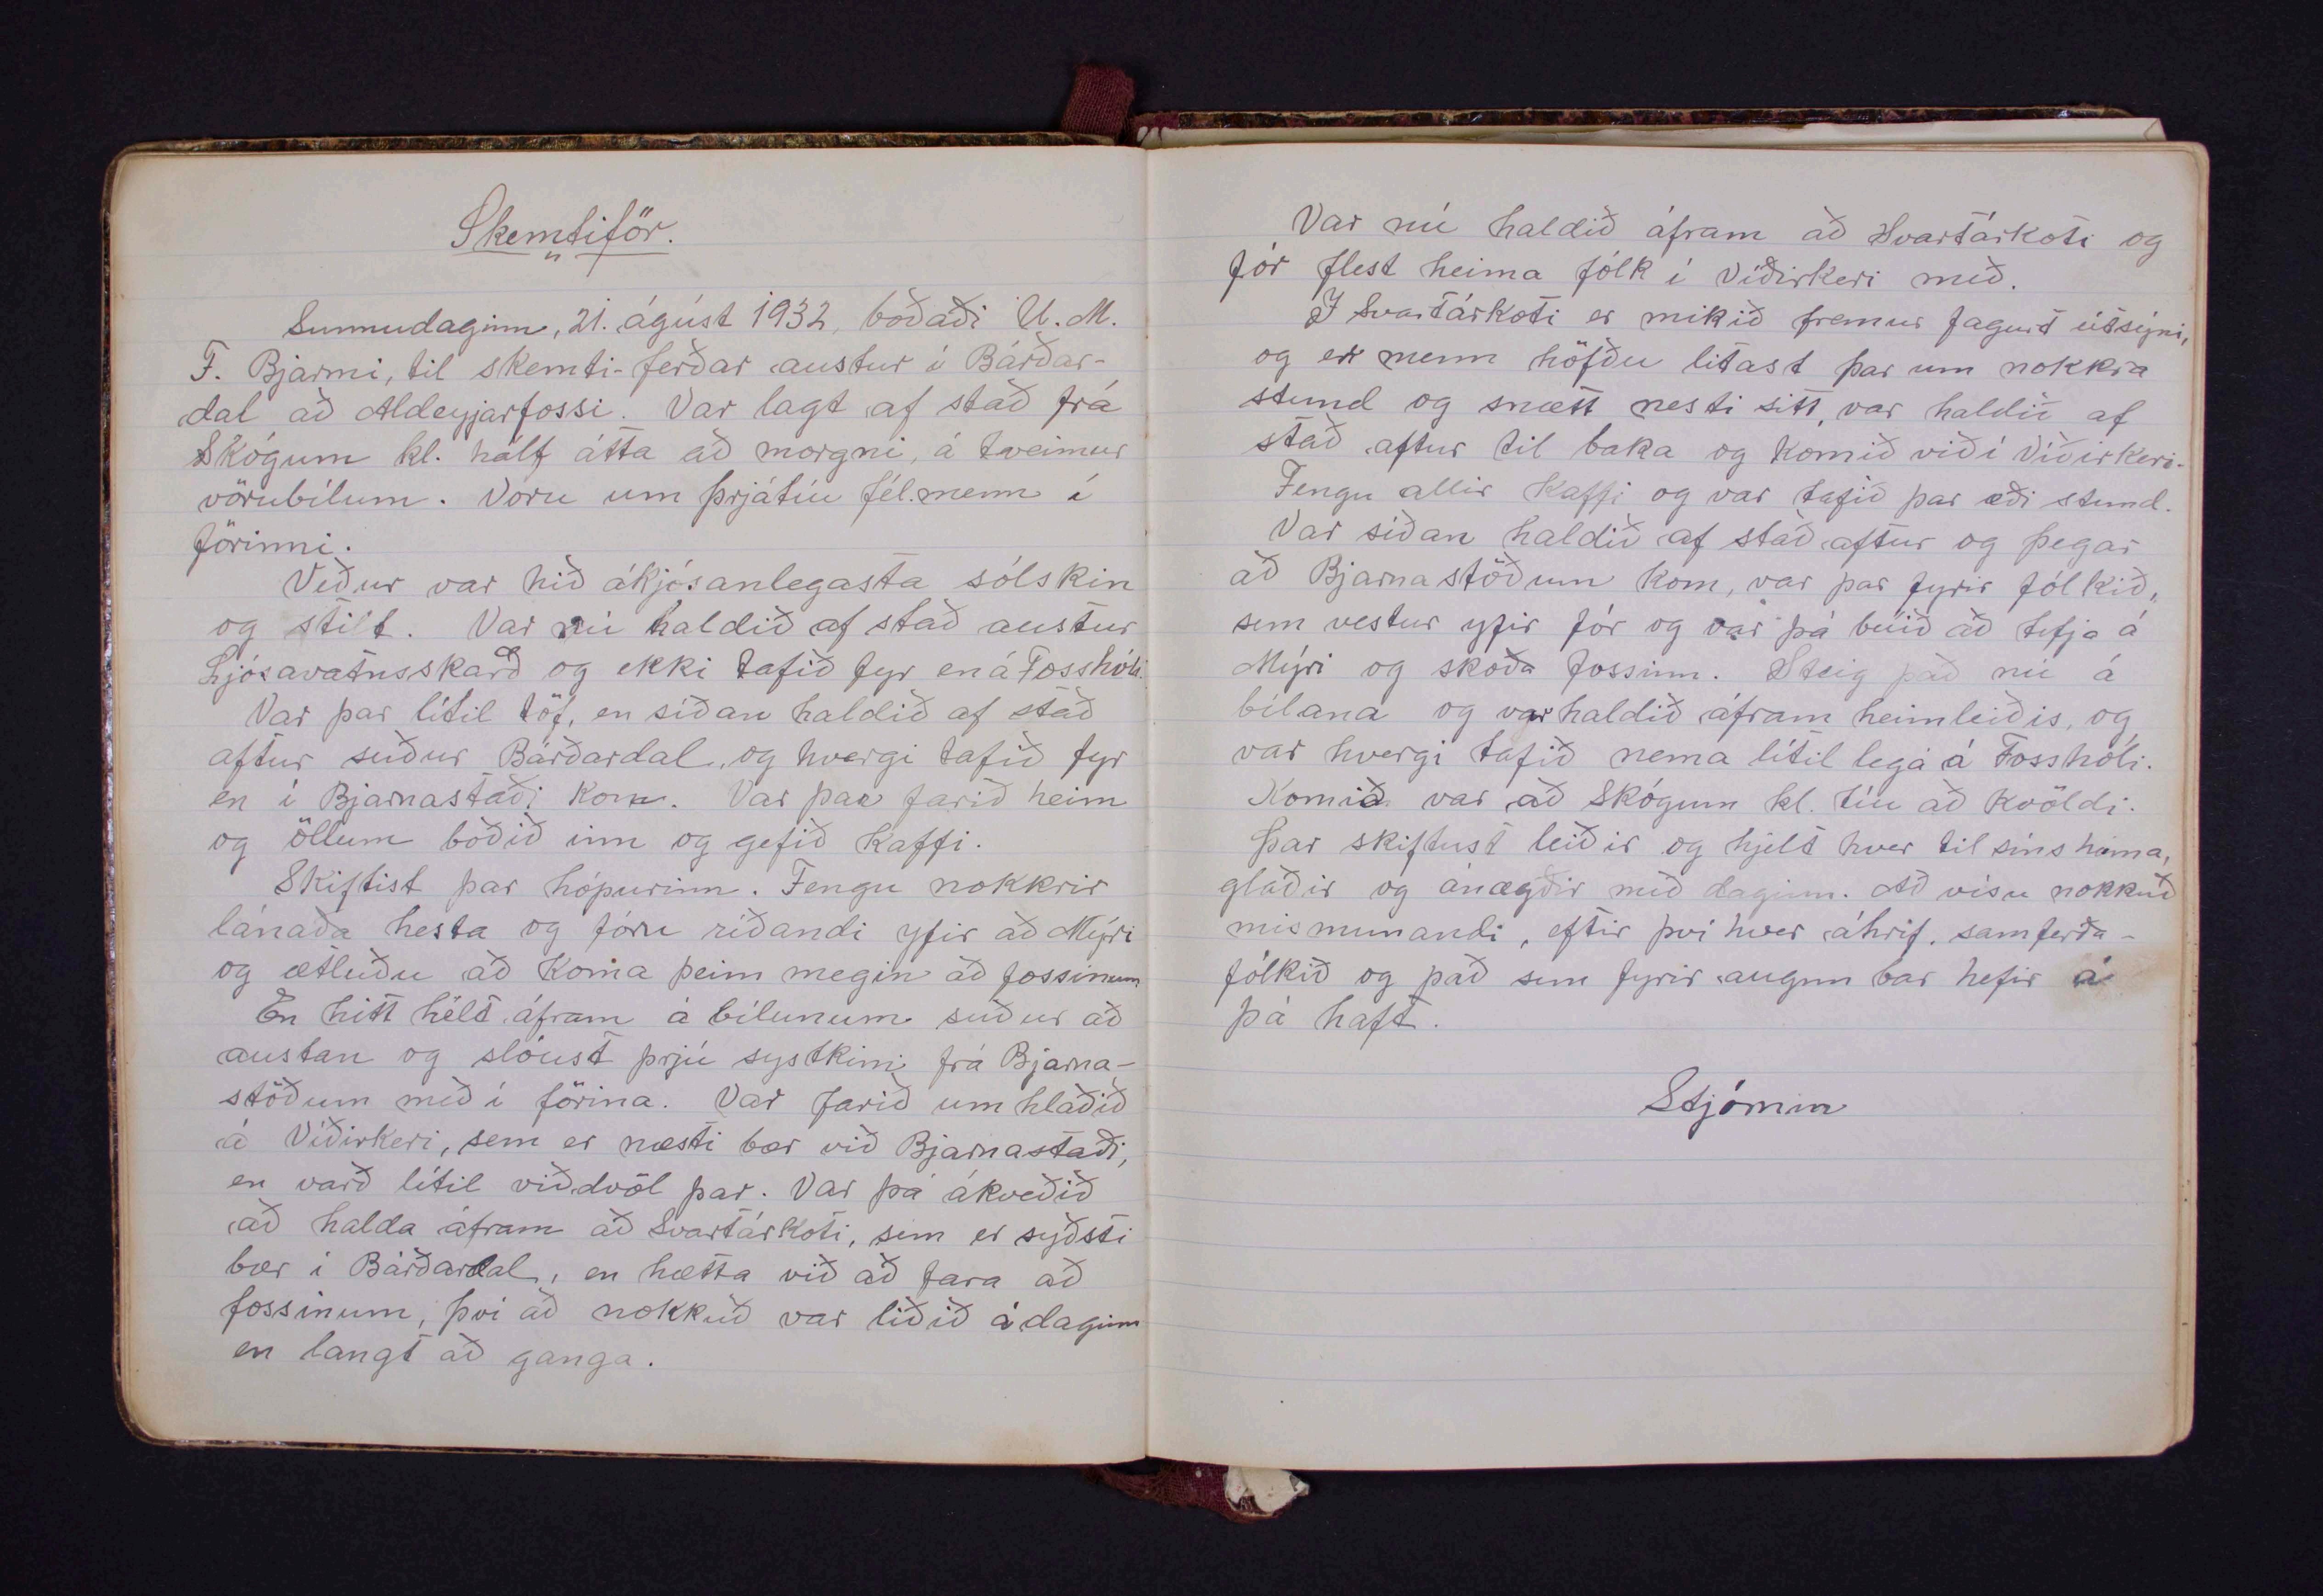 Skemtiför.
Sunnudaginn, 21. ágúst 1932, boðaði U. M.
F. Bjarmi, til skemti-ferðar austur í Bárðar-
dal að Aldeyjarfossi. Var lagt af stað frá
Skógum kl. hálf átta að morgni, á tveimur
vörubílum. Voru um þrjátíu fél.menn í
förinni.
Veður var hið ákjósanlegasta sólskin
og stilt. Var nú haldið af stað austur
Ljósavatnsskarð og ekki tafið fyr en á Fosshóli.
Var þar lítil töf, en síðan haldið af stað
aftur suður Bárðardal, og hvergi tafið fyr
en í Bjarnastaði kom. Var þar farið heim
og öllum boðið inn og gefið kaffi.
Skiftist þar hópurinn. Fengu nokkrir
lánaða hesta og fóru ríðandi yfir að Mýri
og ætluðu að koma þeim megin að fossinum
En hitt hélt áfram á bílunum suður að
austan og slóust þrjú systkini frá Bjarna-
stöðum með í förina. Var farið um hlaðið
á Víðirkeri, sem er næsti bær við Bjarnastaði,
en varð lítil viðdvöl þar. Var þá ákveðið
að halda áfram að Svartárkoti, sem er syðsti
bær í Bárðardal, en hætta við að fara að
fossinum, því að nokkuð var liðið á daginn
en langt að ganga.
Var nú haldið áfram að Svartárkoti og
fór flest heima fólk í Víðirkeri með.
Í Svartárkoti er mikið fremur fagurt útsýni,
og er menn höfðu litast þar um nokkra
stund og snætt nesti sitt, var haldið af
stað aftur til baka og komið við í Víðirkeri.
Fengu allir kaffi og var tafið þar æði stund.
Var síðan haldið af stað aftur og þegar
að Bjarnastöðum kom, var þar fyrir fólkið,
sem vestur yfir fór og var þá búið að tefja á
Mýri og skoða fossinn. Steig það nú á
bílana og var haldið áfram heimleiðis, og
var hvergi tafið nema lítil lega á Fosshóli.
Komið var að Skógum kl. tíu að kvöldi.
Þar skiftust leiðir og hjelt hver til síns heima,
glaðir og ánægðir með daginn. Að vísu nokkuð
mismunandi, eftir því hver áhrif, samferða-
fólkið og það sem fyrir augun bar hefir á
þá haft.
Stjórnin